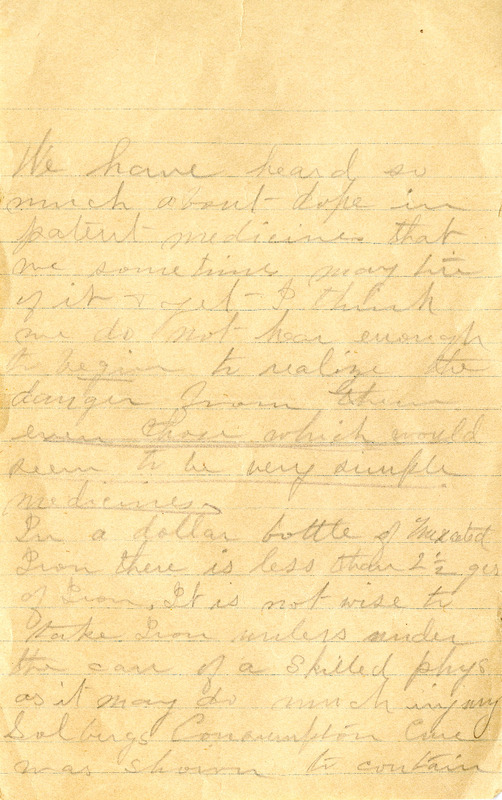 We have heard so
much about dope in
patent medicines that
we sometimes may tire
of it & yet I think
we do not hear enough
to begin to realize the
danger from them
even those which would
seem to be very simple
medicines.
In a dollar bottle of Nuxated
Iron there is less than 2½ grs
of Iron. It is not wise to
take Iron unless under
the care of a skilled phys
as it may do much injury
Consumption Cure
was shown to contain